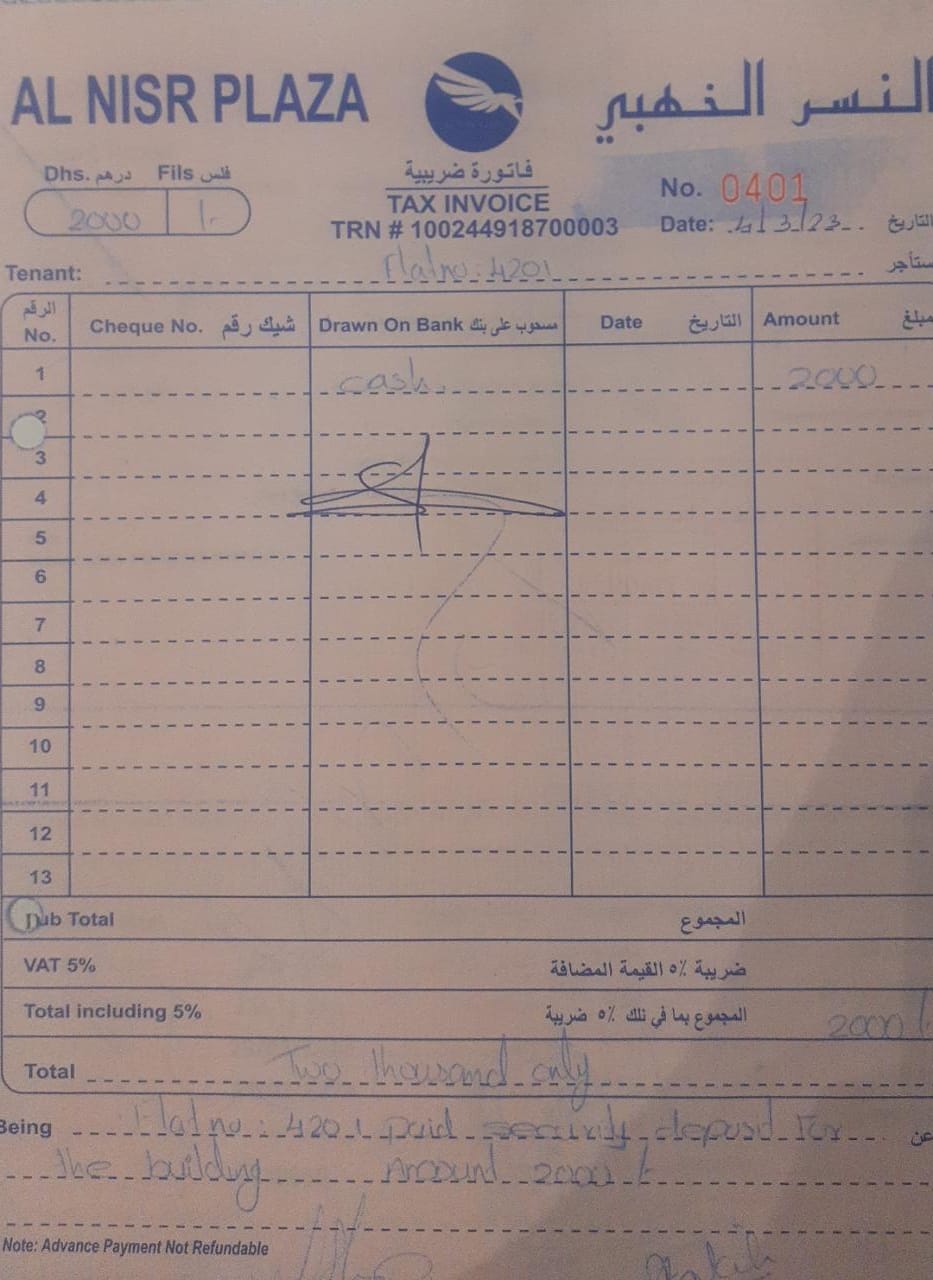 AL NISR PLAZA
النسر الذهبي
Dhs. درهم Fils فلس
2000 /-
فاتورة ضريبية
TAX INVOICE
TRN # 100244918700003
No. 0401
Date: 4/3/23 التاريخ
Tenant: Flat no: 4201 ستأجر
الرقم No. Cheque No. شيك رقم Drawn On Bank مسحوب على بنك Date التاريخ Amount مبلغ
1 cash. 2000
2
3
4
5
6
7
8
9
10
11
12
13
Sub Total المجموع
VAT 5% ضريبة ٥٪ القيمة المضافة
Total including 5% المجموع بما في ذلك ٥٪ ضريبة 2000/-
Total Two thousand only
Being Flat no: 4201 paid security deposit For عن
the building Amount 2000/-
Note: Advance Payment Not Refundable